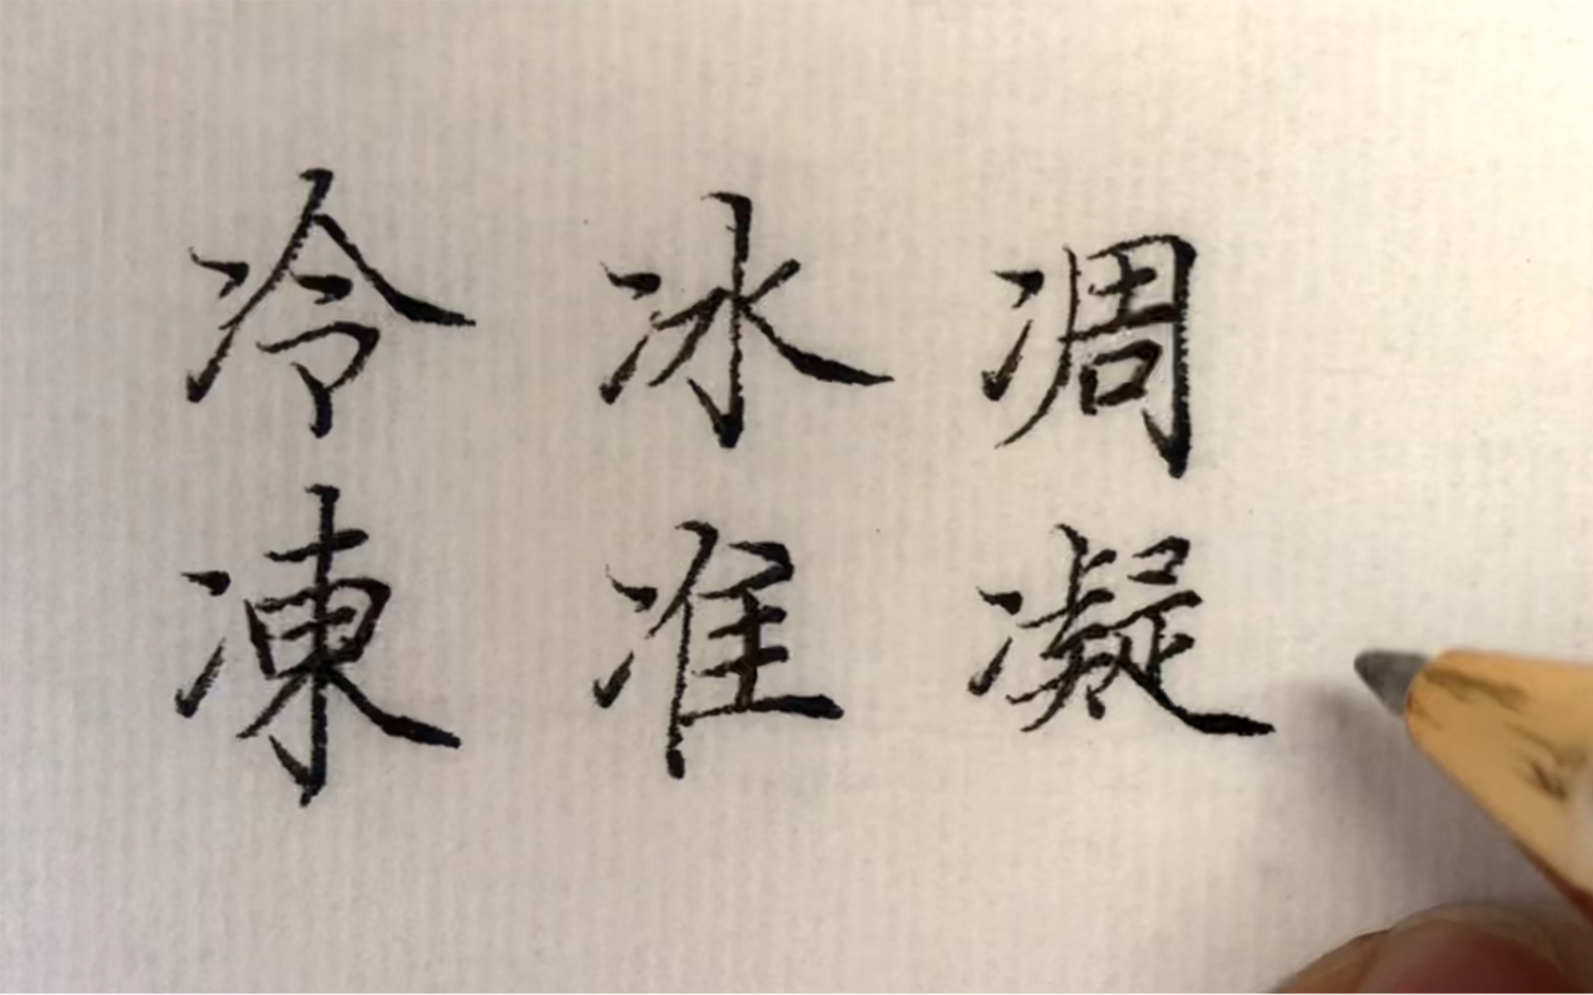 冷冰凋
凍准凝